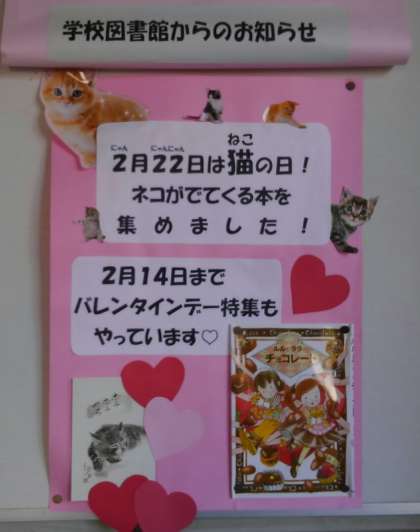 学校図書館からのお知らせ
にゃん にゃんにゃん ねこ
2月22日は猫の日！
ネコがでてくる本を
集めました！
2月14日まで
バレンタインデー特集も
やっています♡
ルルとララの
チョコレート